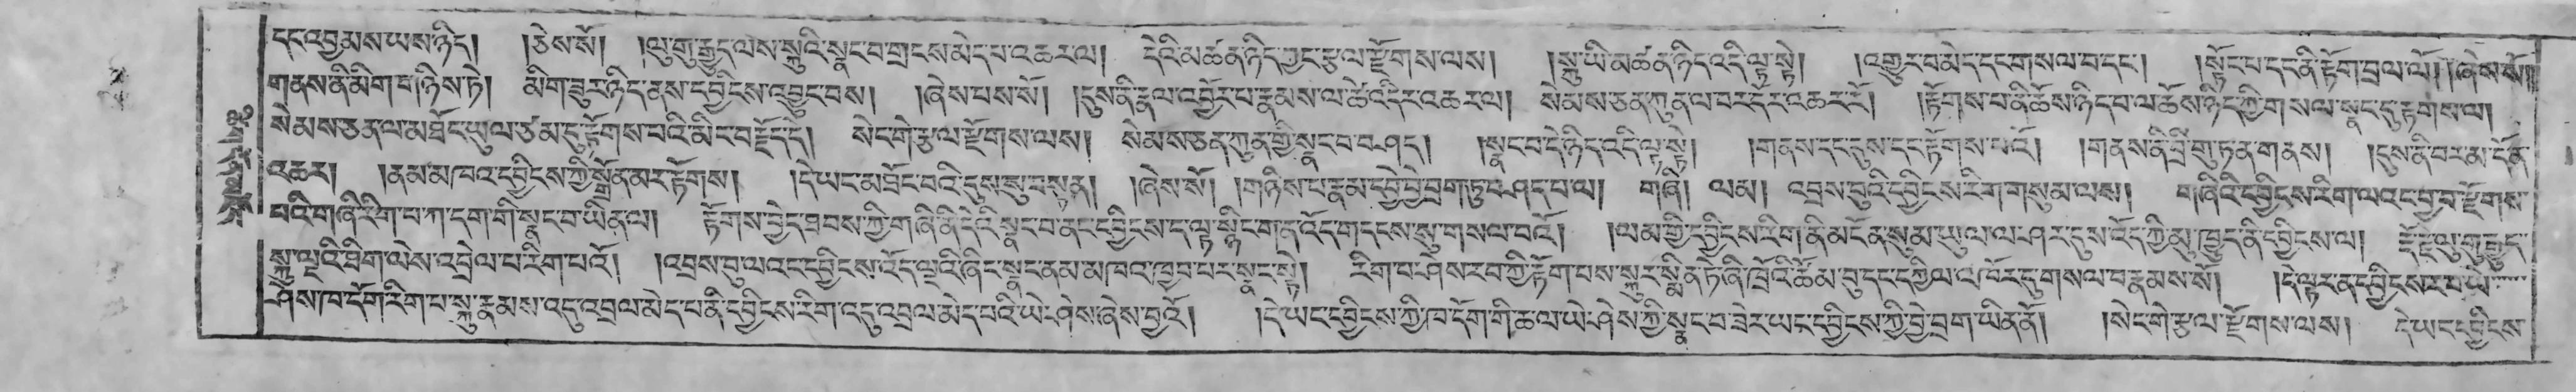 དང་འབྱམས་ཡས་ཉིད། །ཅེས་སོ། །ལུ་གུ་རྒྱུད་ལས་སྐུའི་སྣང་བ་གྲངས་མེད་པ་འཆརལ། དེའི་མཚན་ཉིད་ཀྱང་རྩལ་རྫོགས་ལས། །སྐུ་ཡི་མཚན་ཉིད་འདི་ལྟ་སྟེ། །འགྱུར་བ་མེད་དང་གསལ་བ་དང་། །སྟོང་པ་དང་ནི་རྟོག་བྲལ་ལོ། །ཞེས་སོ།།
གནས་ནི་མིག་བ་ཉིས་ཏེ། མིག་ཟུར་ཉིད་ནས་དབྱིངས་འབྱུང་བས། །ཞེས་པས་སོ། །དུས་ནི་རྣལ་འབྱོར་པ་རྣམས་ལ་ཚེ་འདིར་འཆརལ། སེམས་ཅན་ཀུན་ལ་བར་དོར་འཆར་རོ། །རྟོགས་པ་ནི་ཆོས་ཉིད་པ་ལ་ཆོས་ཉིད་ཀྱི་གསལ་སྣང་དུ་རྟགས་ལ།
སེམས་ཅན་ལ་མཐོང་ཡུལ་ཙམ་དུ་རྟོགས་པའི་མིང་བརྗོད་དེ། སེང་གེ་རྩལ་རྫོགས་ལས། སེམས་ཅན་ཀུན་གྱི་སྣང་བ་བཤད། །སྣང་བ་དེ་ཉིད་འདི་ལྟ་སྟེ། །གནས་དང་དུས་དང་རྟོགས་པའོ། །གནས་ནི་བྷྲི་གུ་ཏ་ན་གནས། །དུས་ནི་བར་མ་དོ་ན་
འཆར། །ནམ་མཁའ་དབྱིངས་ཀྱི་སྒྲོན་མར་རྟོགས། །དེ་ཡང་མཐོང་བའི་དུས་སུ་བསྟན། །ཞེས་སོ། །གཉིས་པ་རྣམ་དབྱེ་བྱེ་བྲག་ཏུ་བཤད་པ་ལ། གཞི། ལམ། འབྲས་བུའི་དབྱིངས་རིག་གསུམ་ལས། གཞིའི་དབྱིངས་རིག་ལའང་བྱ་བ་རྫོགས་
པའི་གཞི་རིག་པ་ཀ་དག་གི་སྣང་བ་ཡིན་ལ། རྟོགས་བྱེད་ཐབས་ཀྱི་གཞི་ནི་དེའི་སྣང་བ་ནང་དབྱིངས་ད་ལྟ་སྙིང་ག་ན་འོད་གདངས་སུ་གསལ་བའོ། །ལམ་གྱི་དབྱིངས་རིག་ནི་མངོན་སུམ་ཡུལ་ལ་ཤར་དུས་འོད་ཀྱི་མུ་ཁྱུད་ནི་དབྱིངས་ལ། རྡོ་རྗེ་ལུ་གུ་རྒྱུད་
སྐུ་ལྔའི་ཐིག་ལེས་འབྲེལ་པ་རིག་པའོ། །འབྲས་བུ་ལའང་དབྱིངས་འོད་ལྔའི་ཞིང་སྣང་ནམ་མཁའ་ཁྱབ་པར་སྣང་སྟེ། རིག་པ་ཤེས་རབ་ཀྱི་རྟོག་པས་སྐུར་སྨིན་ཏེ་ཞི་ཁྲོའི་ཚོམ་བུ་དང་དཀྱིལ་འཁོར་དུ་གསལ་བ་རྣམས་སོ། །དེ་ལྟར་ན་དབྱིངས་རབ་ཡེ་
ཤེས་ཁ་དོག་རིག་པ་སྐུ་རྣམས་འདུ་འབྲལ་མེད་པ་ནི་དབྱིངས་རིག་འདུ་འབྲལ་མེད་པའི་ཡེ་ཤེས་ཞེས་བྱའོ། །དེ་ཡང་དབྱིངས་ཀྱི་ཁ་དོག་གི་ཆ་ལ་ཡེ་ཤེས་ཀྱི་སྣང་བ་ཟེར་ཡང་དབྱིངས་ཀྱི་བྱེ་བྲག་ཡིན་ནོ། །སེང་གེ་རྩལ་རྫོགས་ལས། དེ་ཡང་དབྱིངས་